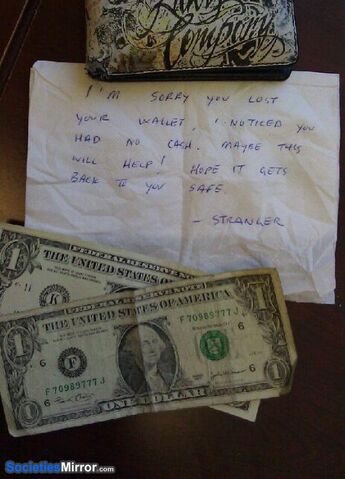 Company
I'M SORRY YOU LOST
YOUR WALLET, I NOTICED YOU
HAD NO CASH. MAYBE THIS
WILL HELP! HOPE IT GETS
BACK TO YOU SAFE.
- STRANGER
FEDERAL RESERVE NOTE
THE UNITED STATES O
1
K
FEDERAL RESERVE NOTE
THE UNITED STATES OF AMERICA
F 70989777 J
6
6
F
F 70989777 J
6
6
1
ONE DOLLAR
SocietiesMirror.com